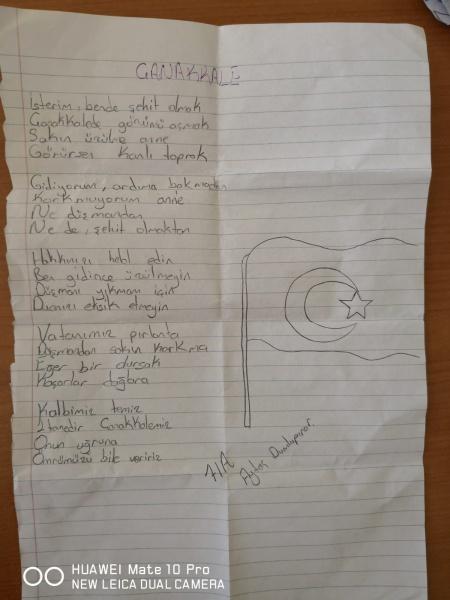 ÇANAKKALE
İsterim, bende şehit olmak
Çanakkalede gönümü açmak
Sakın üzülme anne
Görürsen kanlı toprak
Gidiyorum, ardıma bakmadan
Korkmuyorum anne
Ne düşmandan
Ne de, şehit olmaktan
Hakkınızı helal edin
Ben gidince üzülmeyin
Düşmanı yıkmam için
Duanızı eksik etmeyin
Vatanımız pırlanta
Düşmandan sakın korkma
Eğer bir dursak
Kaçarlar dağlara
Kalbimiz temiz
1 tanedir Çanakkalemiz
Onun uğruna
Ömrümüzü bile veririz
7/A
Dumlupınar
HUAWEI Mate 10 Pro
NEW LEICA DUAL CAMERA